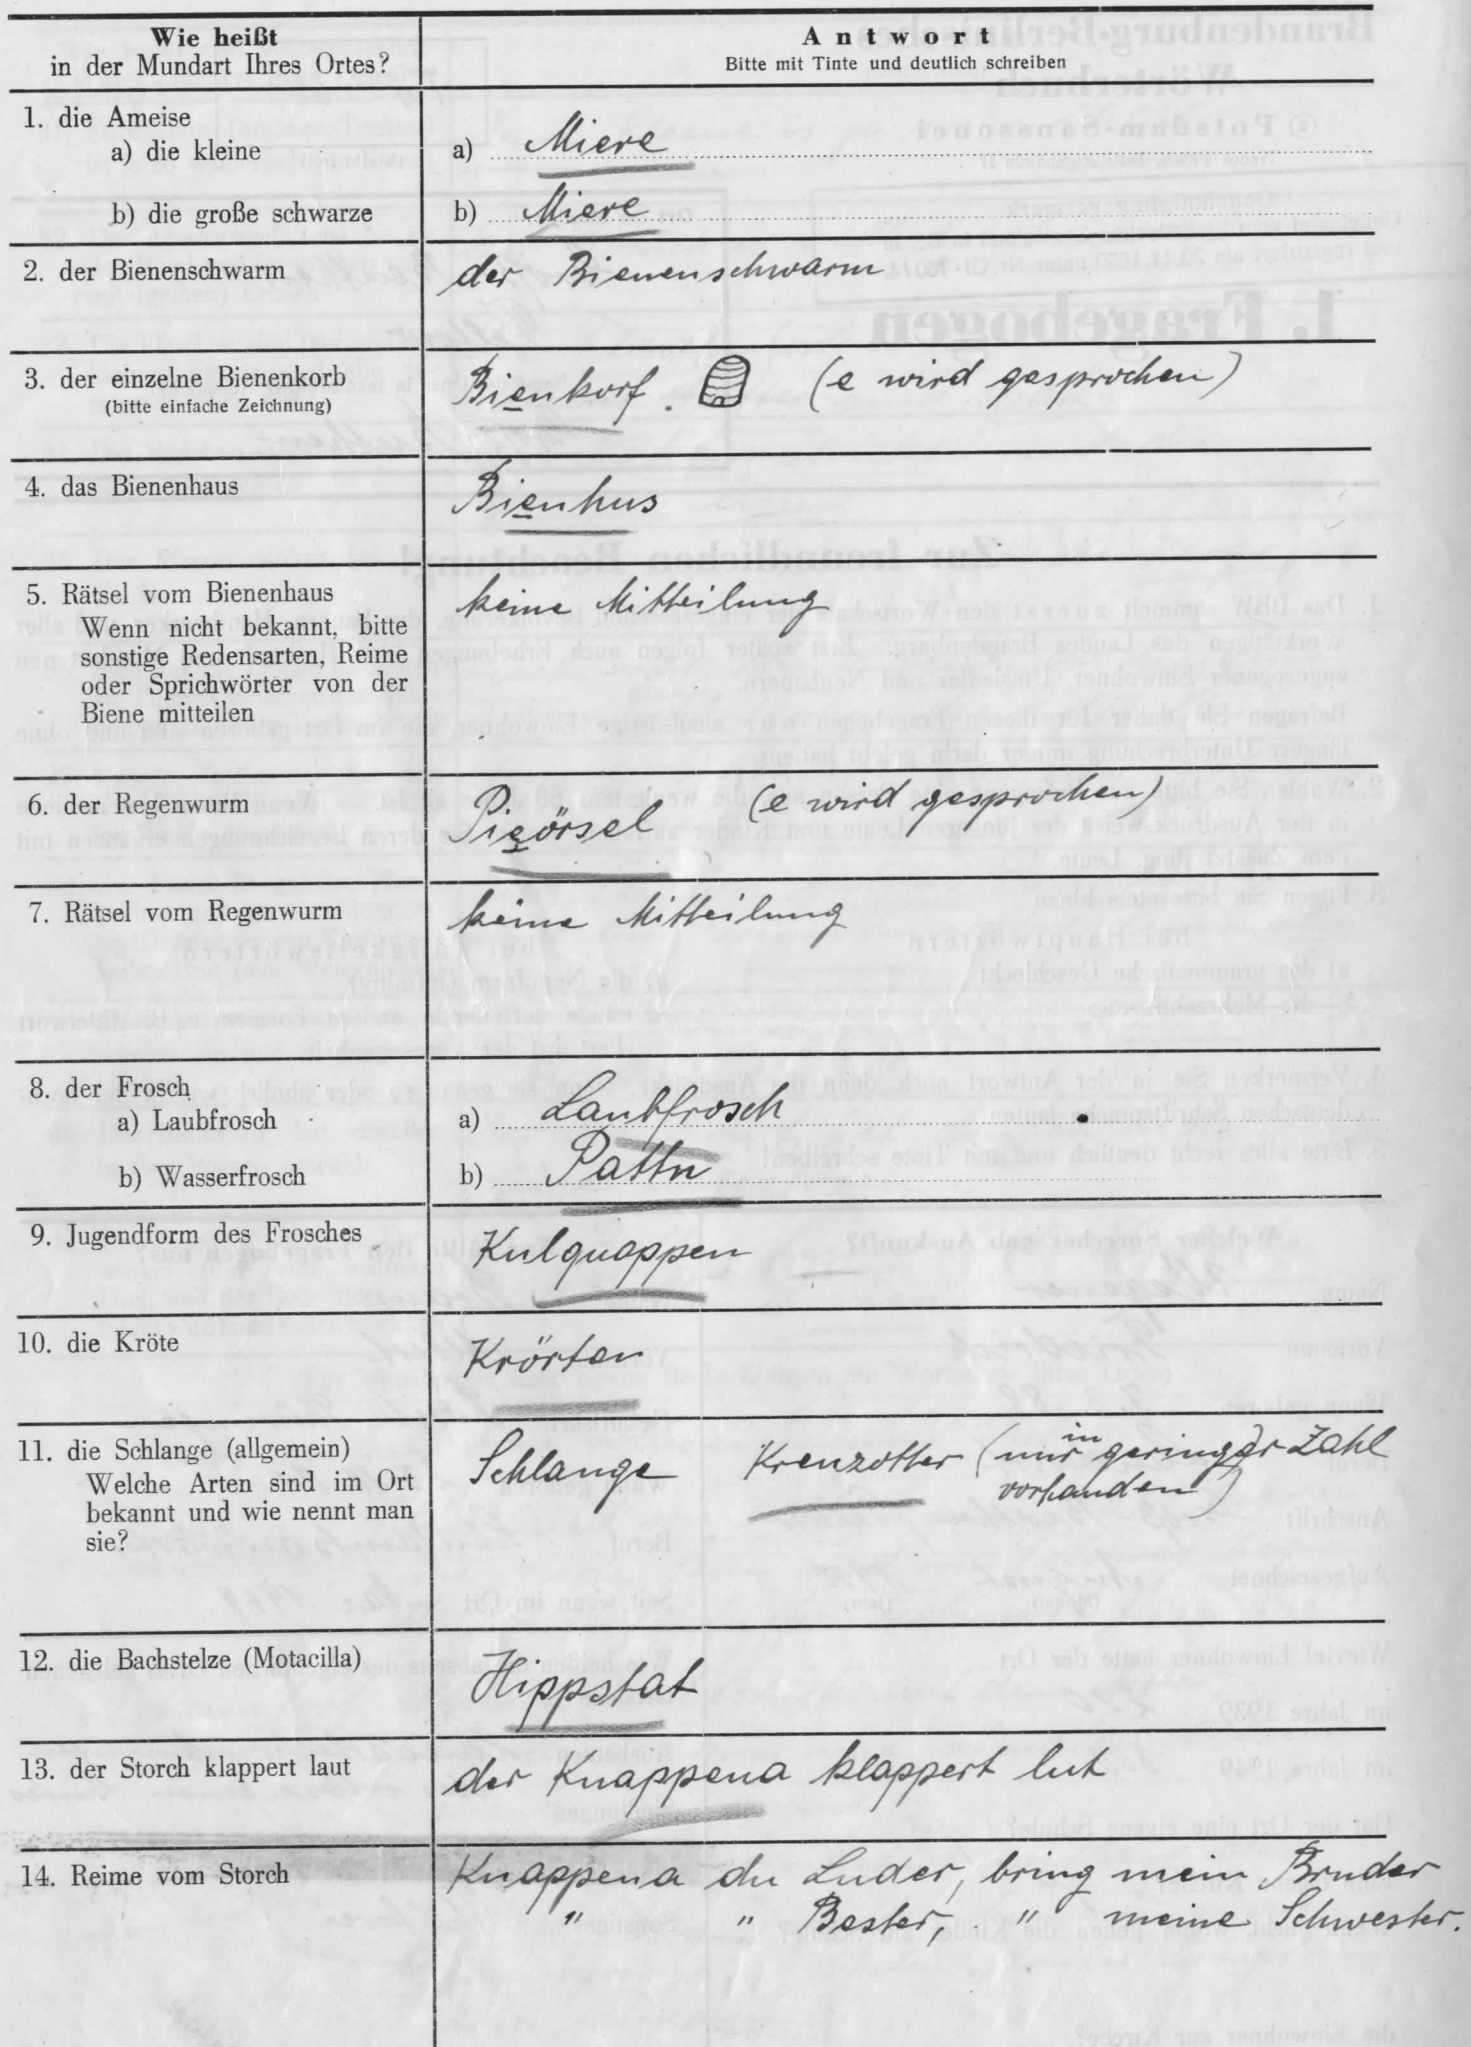 Wie heißt
in der Mundart Ihres Ortes?
Antwort
Bitte mit Tinte und deutlich schreiben
1. die Ameise
a) die kleine
a) Miere
b) die große schwarze
b) Miere
2. der Bienenschwarm
der Bienenschwarm
3. der einzelne Bienenkorb
(bitte einfache Zeichnung)
Bienkorf. (e wird gesprochen)
4. das Bienenhaus
Bienhus
5. Rätsel vom Bienenhaus
Wenn nicht bekannt, bitte
sonstige Redensarten, Reime
oder Sprichwörter von der
Biene mitteilen
keine Mitteilung
6. der Regenwurm
Pieörsel (e wird gesprochen)
7. Rätsel vom Regenwurm
keine Mitteilung
8. der Frosch
a) Laubfrosch
a) Laubfrosch
b) Wasserfrosch
b) Pattn
9. Jugendform des Frosches
Kulquappen
10. die Kröte
Krörten
11. die Schlange (allgemein)
Welche Arten sind im Ort
bekannt und wie nennt man
sie?
Schlange Kreuzotter (nur in geringer Zahl
vorhanden)
12. die Bachstelze (Motacilla)
Hippstat
13. der Storch klappert laut
der Knappena klappert lut
14. Reime vom Storch
Knappena du Luder, bring mein Bruder
" " Bester, " meine Schwester.